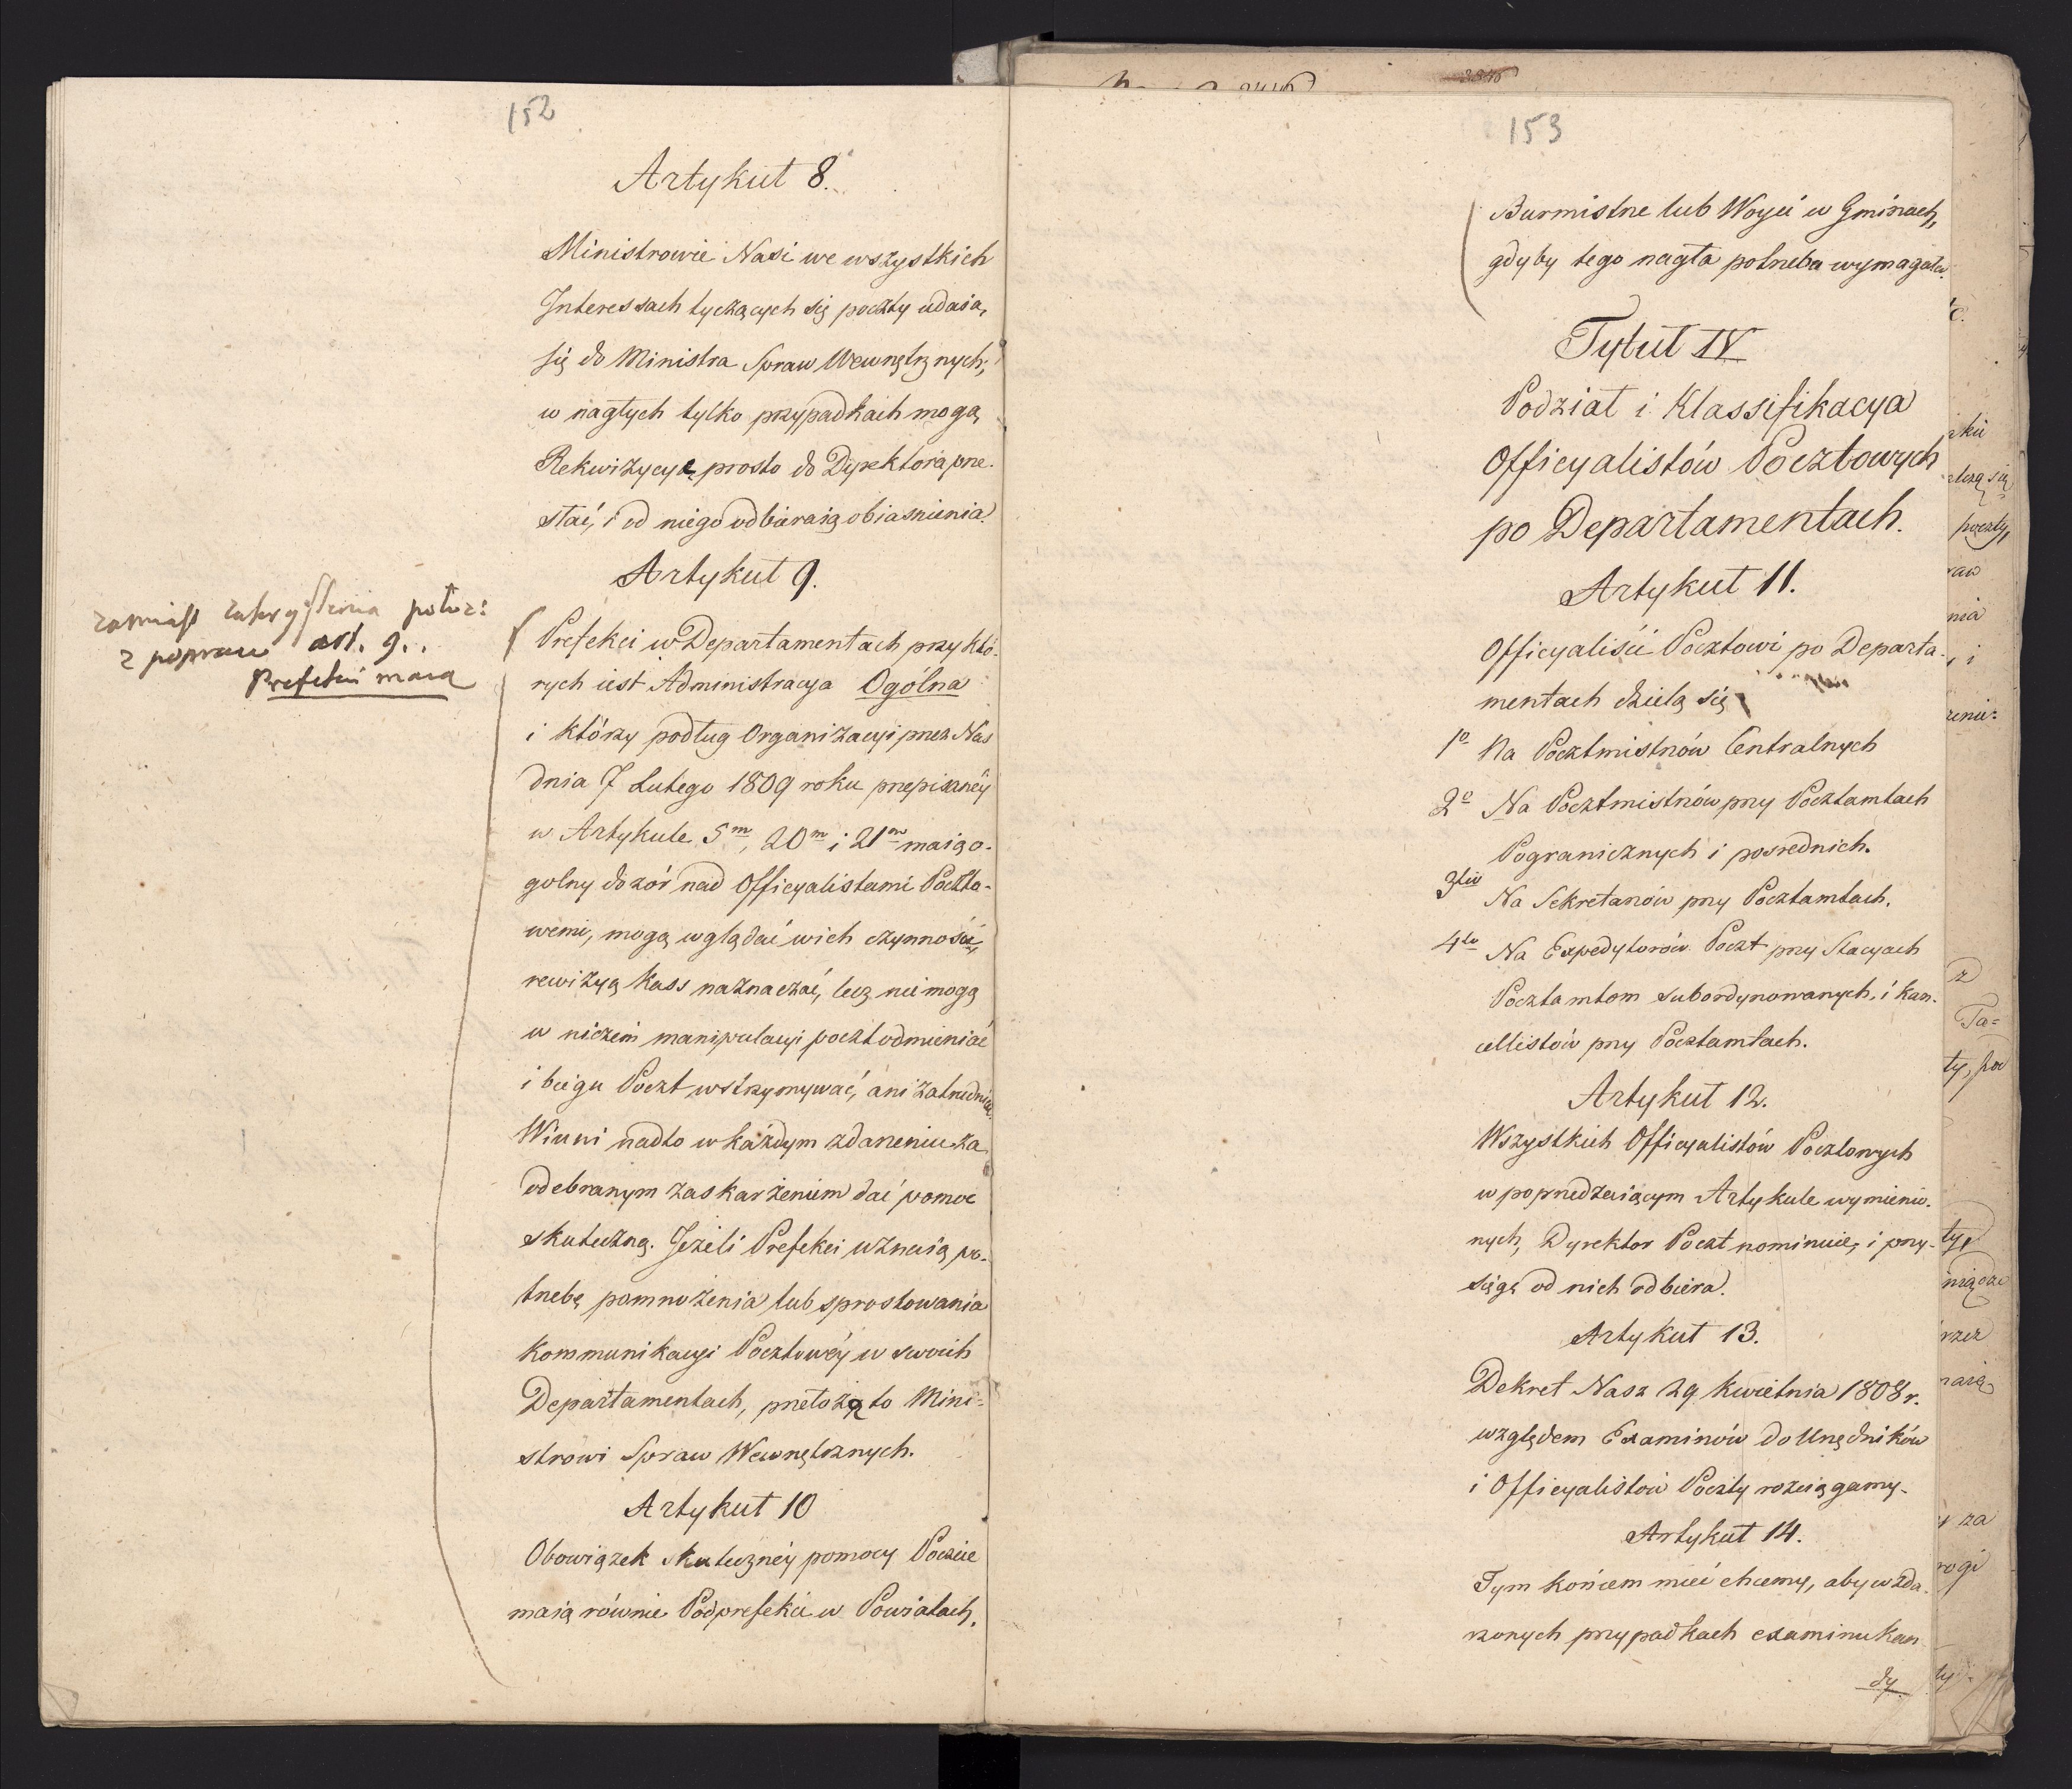 152
Artykuł 8.
Ministrowie Nasi we wszystkich
Interessach tyczących się poczty udaią
się do Ministra Spraw Wewnętrznych;
w nagłych tylko przypadkach mogą
Rekwizycyę prosto do Dyrektora prze-
słać, i od niego odbieraią obiasnienia.
Artykuł 9.
zamiast położ:
z popraw art. 9..
Prefekci maią
Prefekci w Departamentach przy któ-
rych iest Administracya Ogólna
i którzy podług Organizacyi przez Nas
dnia 7 Lutego 1809 roku przepisanéy
w Artykule 5m, 20m i 21m maią o-
golny dozór nad Officyalistami Poczto-
wemi, mogą wglądać w ich czynności,
rewizyą Kass naznaczać, lecz nie mogą
w niczém manipulacyi poczt odmieniać
i biegu Poczt wstrzymywać, ani zatrudniać.
Winni nadto w każdym zdarzeniu za
odebranym zaskarżeniem dać pomoc
skuteczną. Jeżeli Prefekci uznaią po-
trzebę pomnożenia lub sprostowania
Kommunikacyi Pocztowéy w swoich
Departamentach, przełożą to Mini-
strowi Spraw Wewnętrznych.
Artykuł 10
Obowiązek skutecznéy pomocy Poczcie
maią równie Podprefekci w Powiatach,
153
Burmistrze lub Woyci w Gminach,
gdyby tego nagła potrzeba wymagała.
Tytuł IV
Podział i Klassifikacya
Officyalistów Pocztowych
po Departamentach.
Artykuł 11.
Officyaliści Pocztowi po Departa-
mentach dzielą się
1o Na Pocztmistrzów Centralnych
2o Na Pocztmistrzów przy Pocztamtach
Pogranicznych i posrednich.
3tio Na Sekretarzów przy Pocztamtach.
4to Na Expedytorów Poczt przy Stacyach
Pocztamtom subordynowanych, i kan-
cellistów przy Pocztamtach.
Artykuł 12.
Wszystkich Officyalistów Pocztowych
w poprzedzaiącym Artykule wymienio-
nych, Dyrektor Poczt nominuie, i przy-
sięgę od nich odbiera.
Artykuł 13.
Dekret Nasz 29 Kwietnia 1808 r.
względem Examinów do Urzędników
i Officyalistów Poczty rozciągamy.
Artykuł 14.
Tym końcem mieć chcemy, aby w zda-
rzonych przypadkach examinu kan-
dy